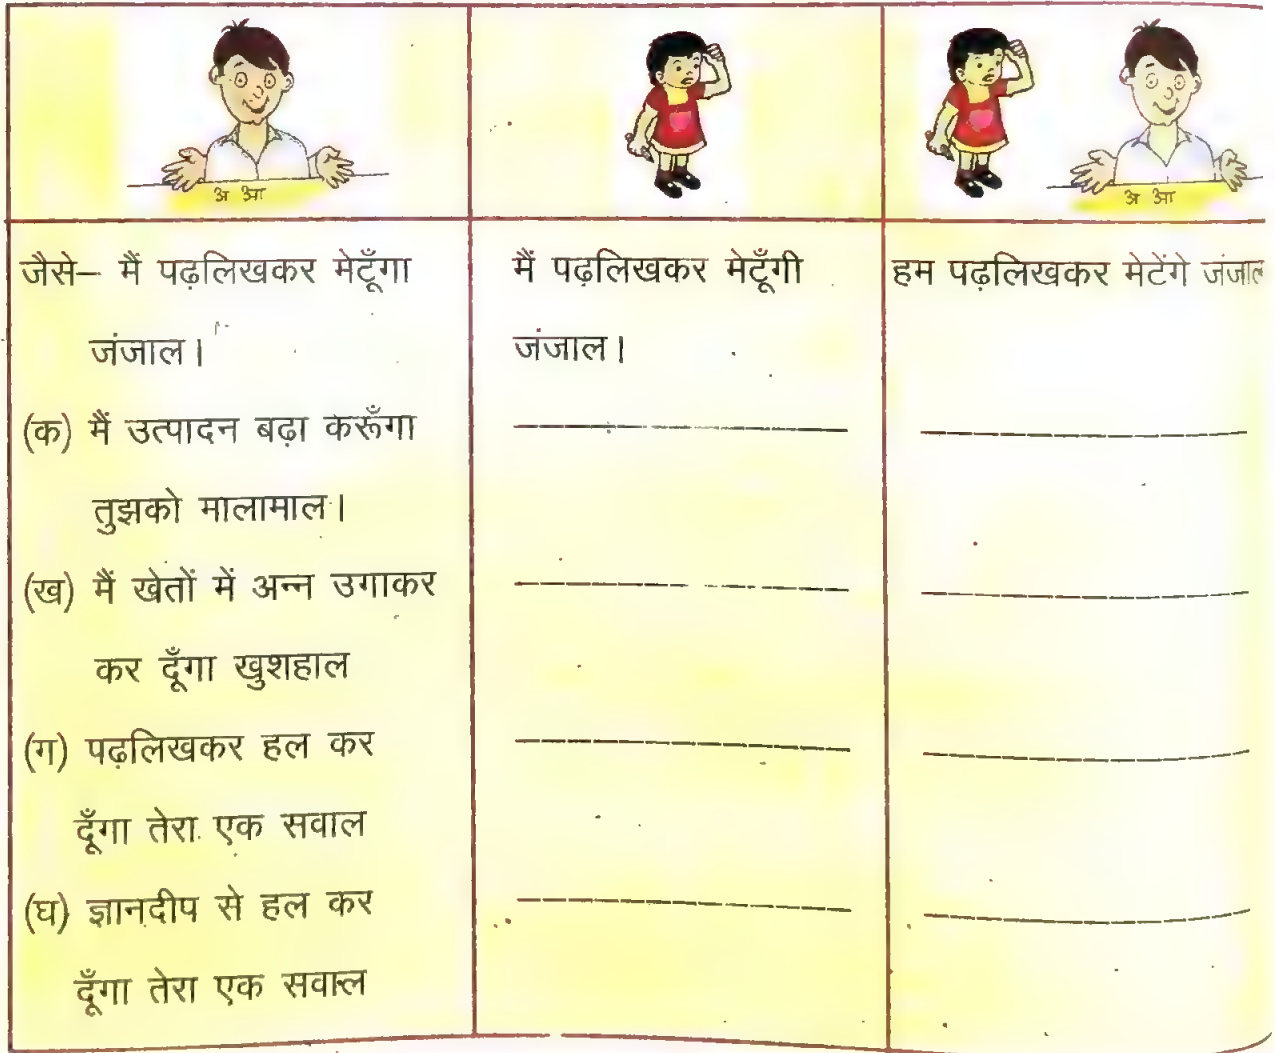 अ आ
अ आ
जैसे– मैं पढ़लिखकर मेटूँगा
जंजाल।
मैं पढ़लिखकर मेटूँगी
जंजाल।
हम पढ़लिखकर मेटेंगे जंजाल
(क) मैं उत्पादन बढ़ा करूँगा
तुझको मालामाल।
(ख) मैं खेतों में अन्न उगाकर
कर दूँगा खुशहाल
(ग) पढ़लिखकर हल कर
दूँगा तेरा एक सवाल
(घ) ज्ञानदीप से हल कर
दूँगा तेरा एक सवाल